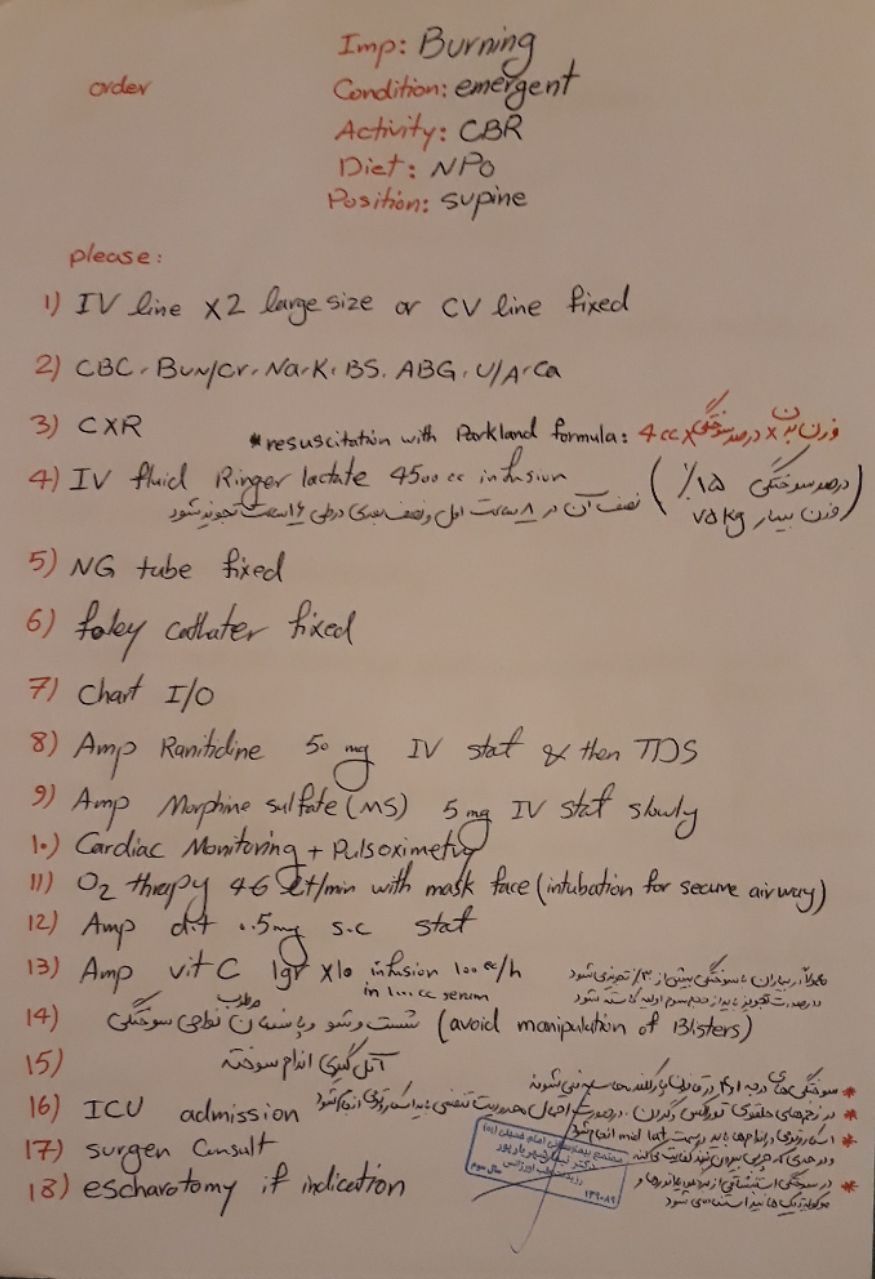 Imp: Burning
order
Condition: emergent
Activity: CBR
Diet: NPO
Position: supine
please:
1) IV line X2 large size or CV line fixed
2) CBC, Bun/Cr, Na, K, BS. ABG, U/A, Ca
3) CXR
*resuscitation with Parkland formula: 4cc x درصد سوختگی x وزن بدن
4) IV fluid Ringer lactate 4500 cc infusion
(درصد سوختگی ۱۵٪
وزن بیمار ۷۵ kg)
نصف آن در ۸ ساعت اول و نصف بعدی در طی ۱۶ ساعت تجویز شود
5) NG tube fixed
6) foley catheter fixed
7) Chart I/O
8) Amp Ranitidine 50 mg IV stat & then TDS
9) Amp Morphine sulfate (MS) 5 mg IV stat slowly
10) Cardiac Monitoring + Pulsoximetry
11) O2 therapy 4-6 Lit/min with mask face (intubation for secure airway)
12) Amp d.t 0.5mg s.c stat
13) Amp vit C 1gr X10 infusion 100 cc/h
in 1000 cc serum
معمولاً در بیماران با سوختگی بیش از ۳۰٪ تجویز می شود
در صورت تجویز باید از حجم سرم اولیه کاسته شود
14) شست و شو و پانسمان مرطوب نواحی سوختگی (avoid manipulation of Blisters)
15) آتل گیری اندام سوخته
* سوختگی های درجه ۱ در فرمول پارکلند محاسبه نمی شوند
16) ICU admission
* در زخم های حلقوی توراکس و گردن، در صورت احتمال محدودیت تنفسی باید اسکارتومی انجام شود
17) surgen Consult
* اسکارتومی در اندام ها باید در سمت mid lat انجام شود
و در حدی که چربی بیرون بزند کفایت می کند
18) escharotomy if indication
* در سوختگی استنشاقی از برونکودیلاتورها و
موکولیتیک ها نیز استفاده می شود
مجتمع بیمارستانی امام خمینی (ره)
۱۳۹۰۸۹